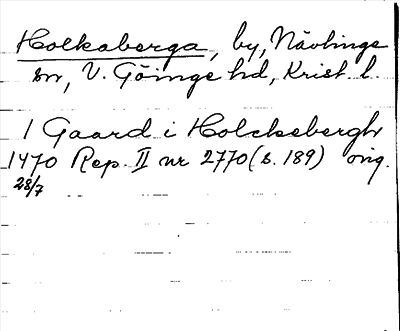 Holkaberga, by, Nävlinge
sn, V. Göinge hd, Krist. l.
1 Gaard i Holcksbergh
1470 Rep. II nr 2770 (s. 189) orig.
28/7